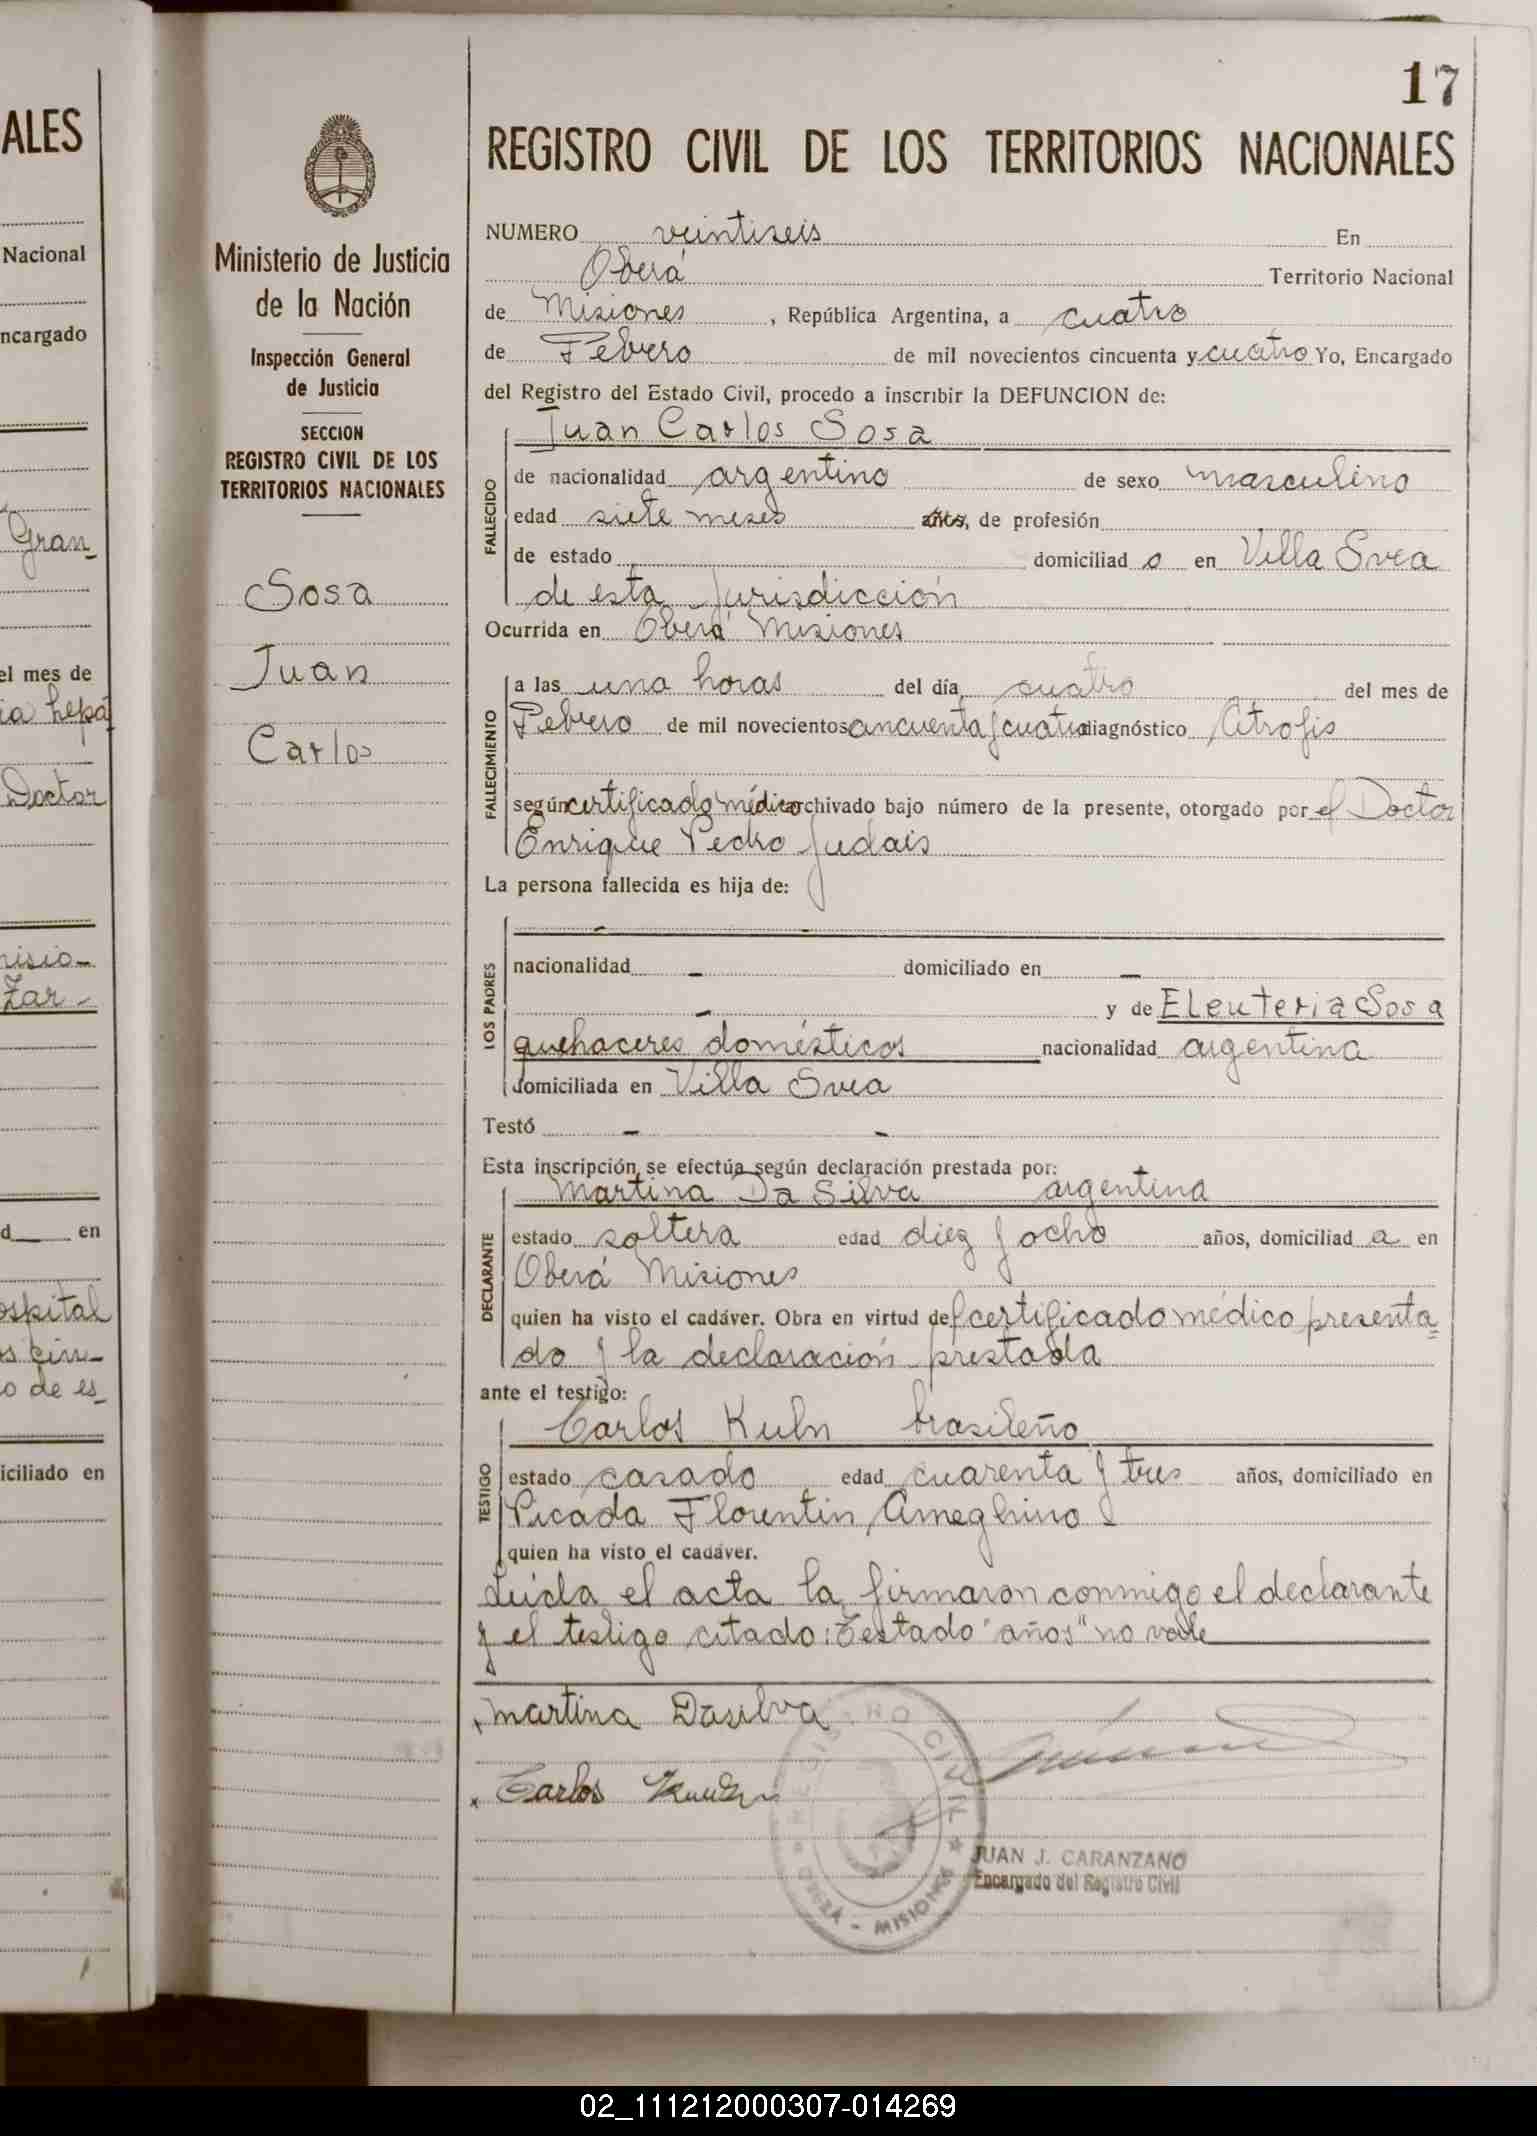 ALES
Nacional
ncargado
Gran-
el mes de
ia hepá
Doctor
misio-
Zar-
d en
ospital
s cin-
o de es-
iciliado en
Ministerio de Justicia
de la Nación
Inspección General
de Justicia
SECCION
REGISTRO CIVIL DE LOS
TERRITORIOS NACIONALES
Sosa
Juan
Carlos
17
REGISTRO CIVIL DE LOS TERRITORIOS NACIONALES
NUMERO veintiseis En
Oberá Territorio Nacional
de Misiones, República Argentina, a cuatro
de Febrero de mil novecientos cincuenta y cuatro Yo, Encargado
del Registro del Estado Civil, procedo a inscribir la DEFUNCION de:
Juan Carlos Sosa
FALLECIDO
de nacionalidad argentino de sexo masculino
edad siete meses años, de profesión
de estado domiciliad o en Villa Svea
de esta jurisdicción
Ocurrida en Oberá Misiones
FALLECIMIENTO
a las una horas del día cuatro del mes de
Febrero de mil novecientos cincuenta y cuatro diagnóstico Atrofis
según certificado médico archivado bajo número de la presente, otorgado por el Doctor
Enrique Pedro Judais
La persona fallecida es hija de:
LOS PADRES
nacionalidad - domiciliado en -
- y de Eleuteria Sosa
quehaceres domésticos nacionalidad argentina
domiciliada en Villa Svea
Testó - -
Esta inscripción se efectúa según declaración prestada por:
DECLARANTE
Martina Da Silva argentina
estado soltera edad diez y ocho años, domiciliad a en
Oberá Misiones
quien ha visto el cadáver. Obra en virtud del certificado médico presenta-
do y la declaración prestada
ante el testigo:
TESTIGO
Carlos Kuhn brasileño
estado casado edad cuarenta y tres años, domiciliado en
Picada Florentin Ameghino
quien ha visto el cadáver.
Leída el acta la firmaron conmigo el declarante
y el testigo citado: Testado "años" no vale
Martina Dasilva
Carlos
REGISTRO CIVIL
OBERÁ - MISIONES
JUAN J. CARANZANO
Encargado del Registro Civil
02_111212000307-014269